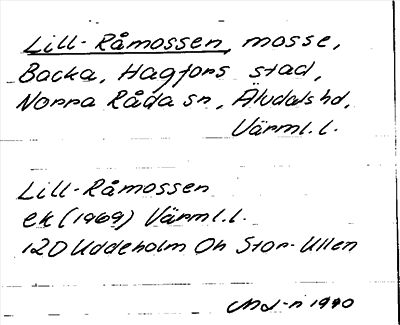 Lill-Råmossen, mosse,
Backa, Hagfors stad,
Norra Råda sn, Älvdals hd,
Värml. l.
Lill-Råmossen
ek (1969) Värml. l.
12D Uddeholm Oh Stor-Ullen
1990